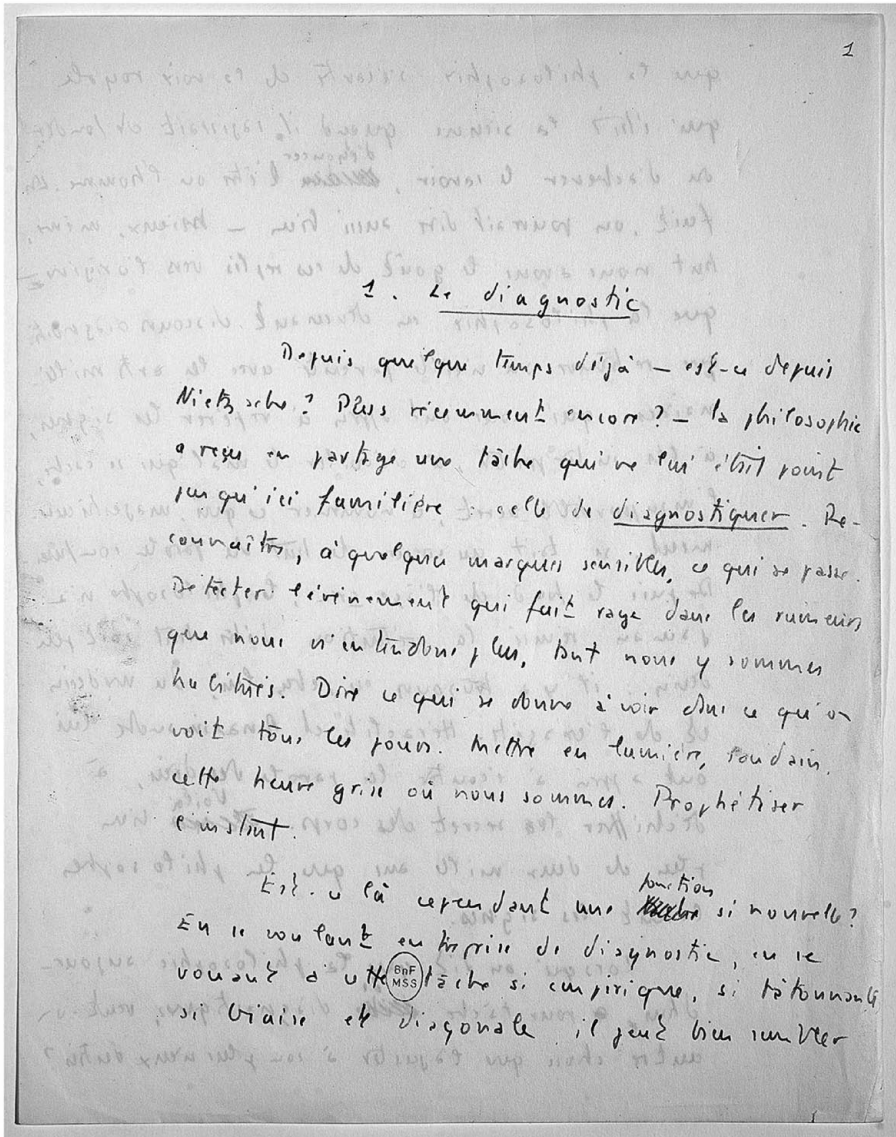 1
1. Le diagnostic
Depuis quelque temps déjà — est-ce depuis
Nietzsche ? Plus récemment encore ? — la philosophie
a reçu en partage une tâche qui ne lui était point
jusqu'ici familière : celle de diagnostiquer. Re-
connaître, à quelques marques sensibles, ce qui se passe.
Détecter l'événement qui fait rage dans les rumeurs
que nous n'entendons plus, tant nous y sommes
habitués. Dire ce qui se donne à voir dans ce qu'on
voit tous les jours. Mettre en lumière, soudain,
cette heure grise où nous sommes. Prophétiser
l'instant.
Est-ce là cependant une fonction si nouvelle ?
En se voulant entreprise de diagnostic, en se
vouant à cette tâche si empirique, si tâtonnante
si biaise et diagonale il peut bien sembler
BnF
MSS